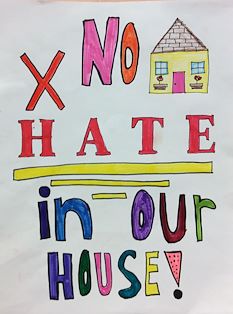 NO
HATE
in our
HOUSE!